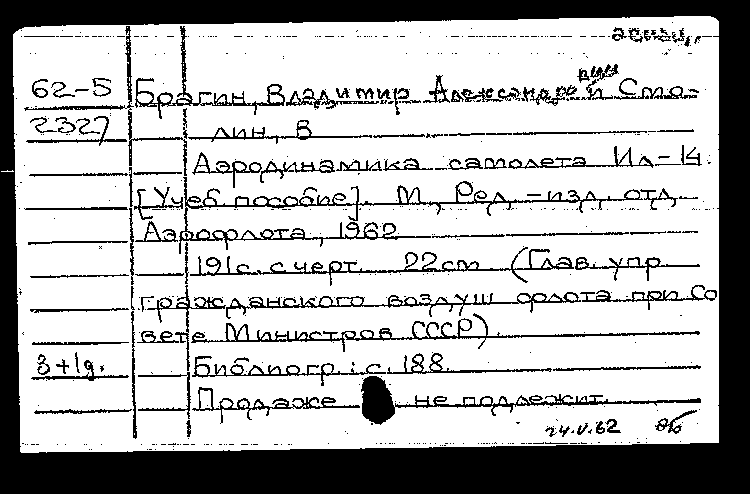 62-5 Брагин, Владимир Александрович и Сто-
2327 лин, В
Аэродинамика самолета Ил-14.
[Учеб пособие]. М., Ред.-изд. отд.
Аэрофлота, 1962
191 с. с черт. 22 см (Глав. упр
гражданского воздуш флота при Со
вете Министров СССР).
3+1д. Библиогр.: с. 188.
Продаже не подлежит.
24.V.62